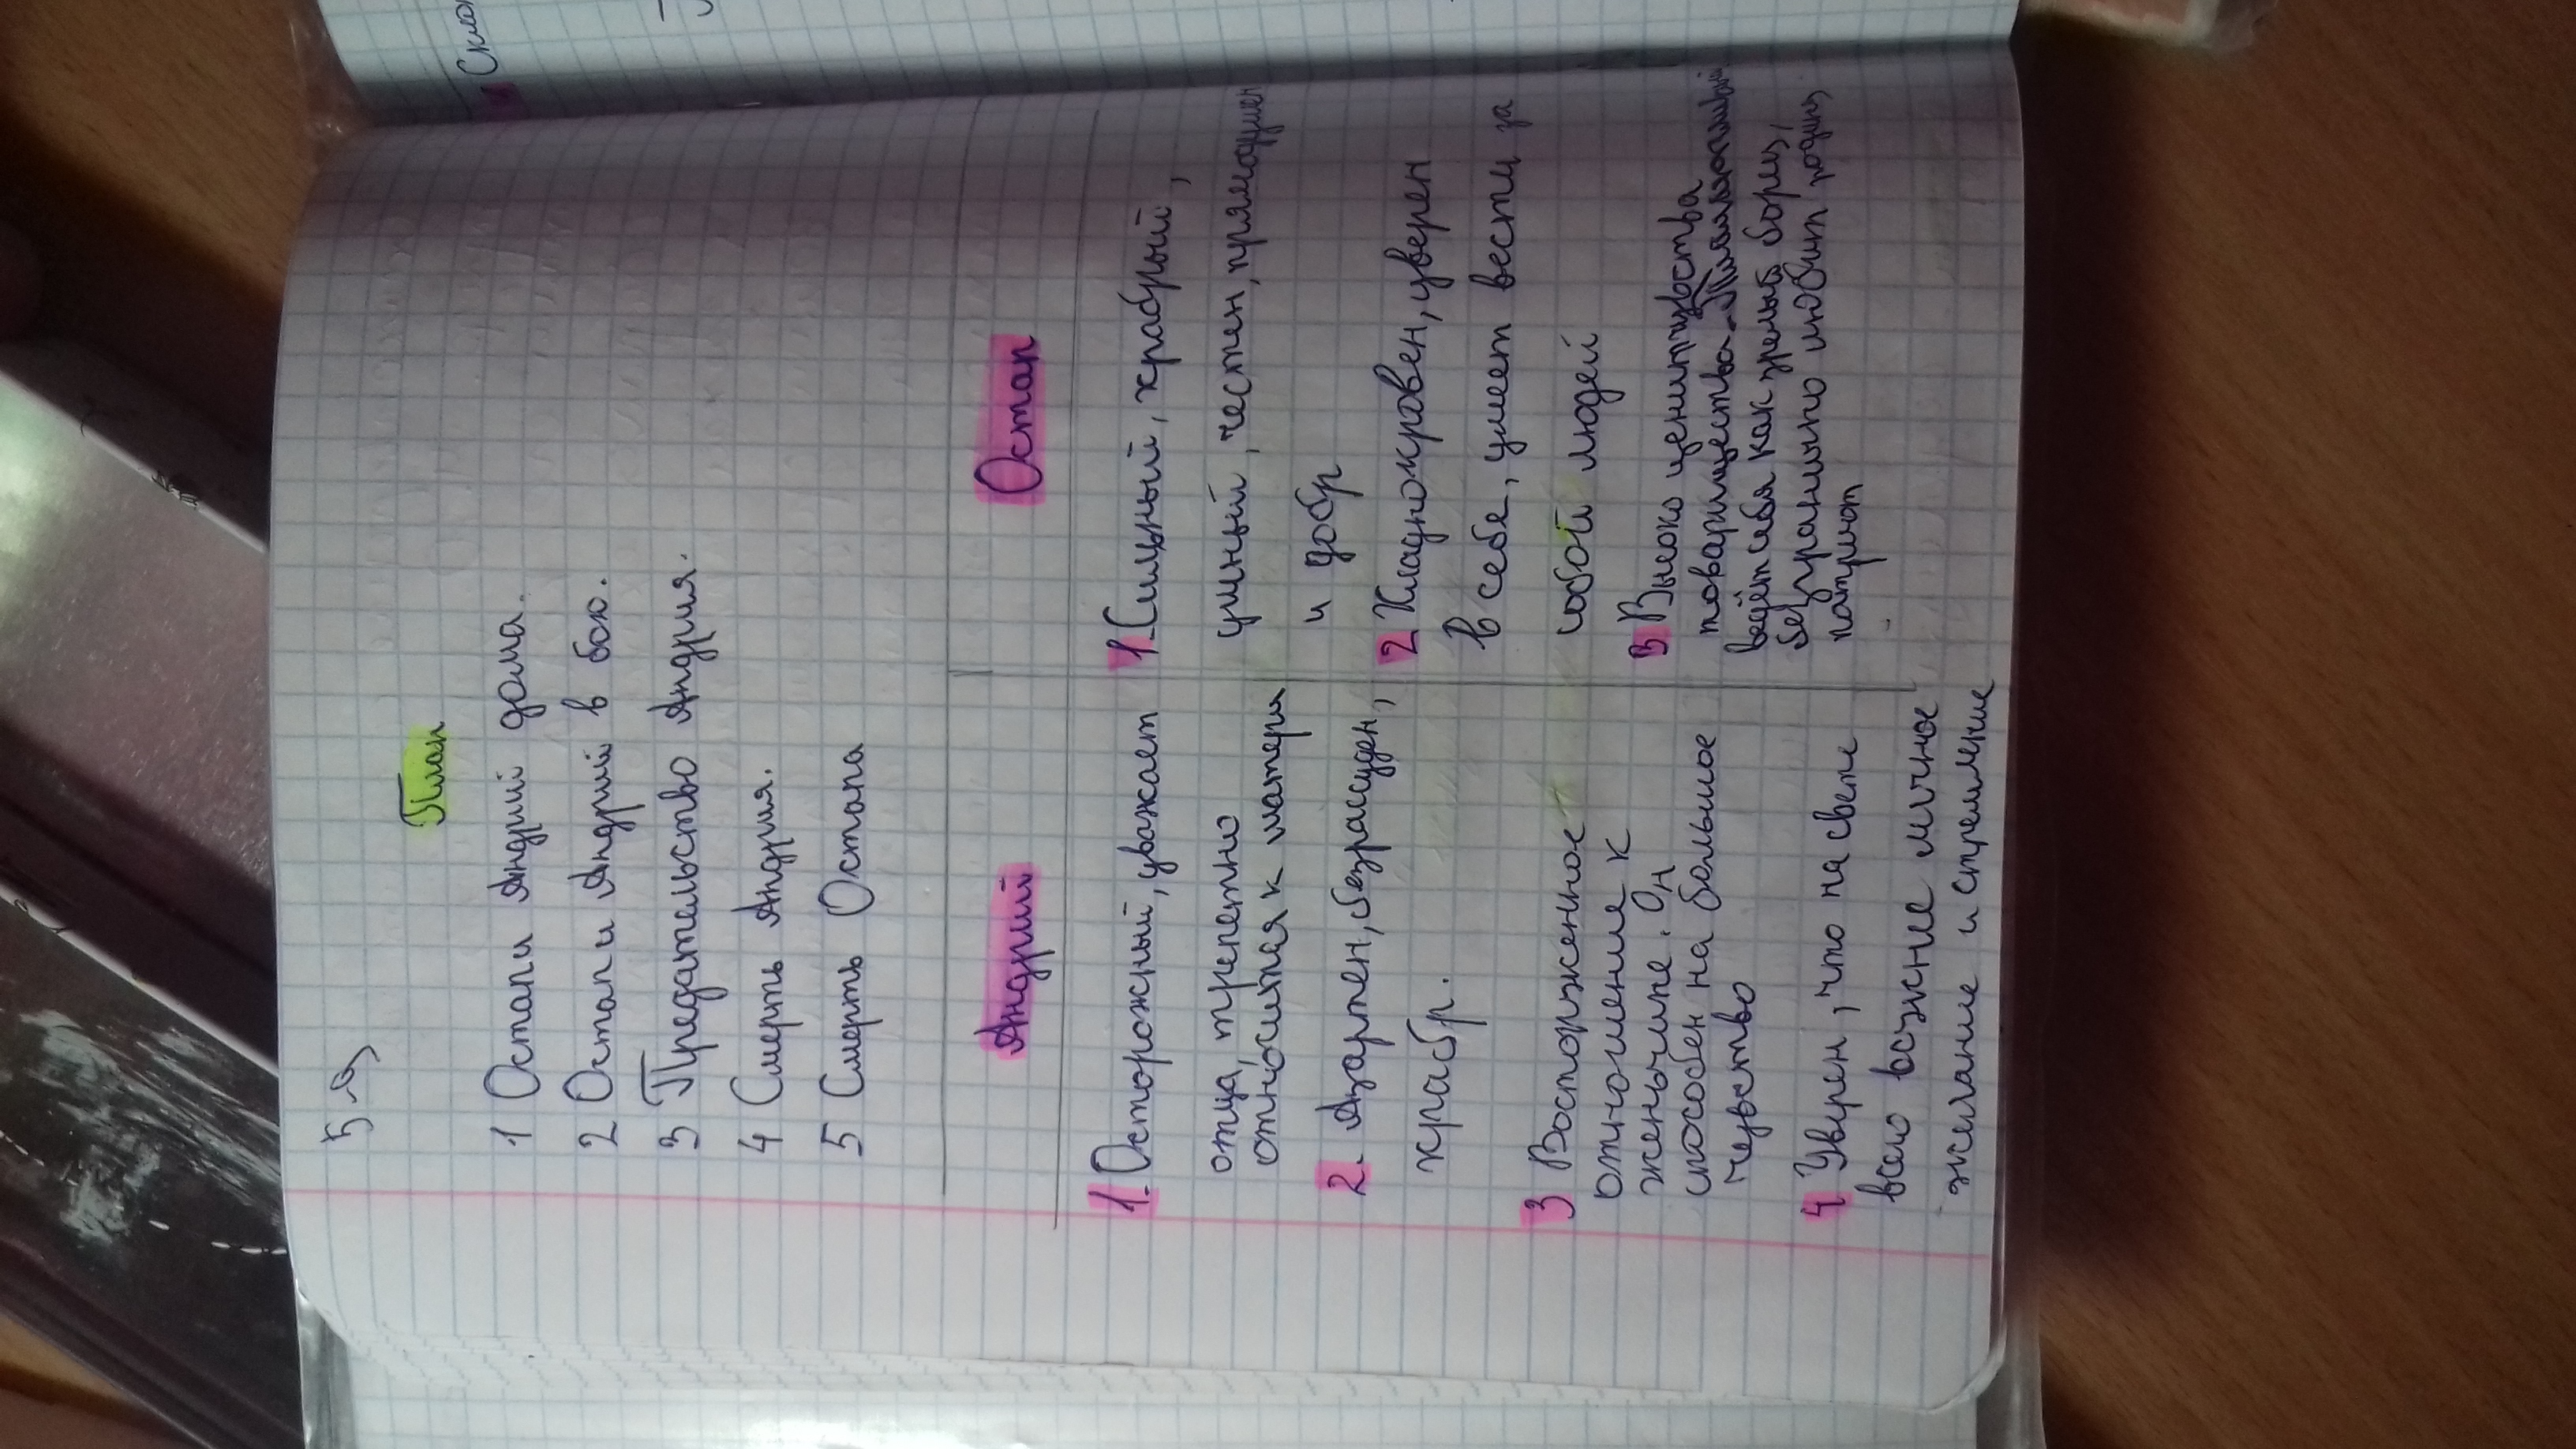 План
1 Остап и Андрий дома.
2 Остап и Андрий в бою.
3 Предательство Андрия.
4 Смерть Андрия.
5 Смерть Остапа
Андрий
1. Осторожный, уважает
отца, трепетно
относится к матери
2. Азартен, безрассуден,
храбр.
3 Восторженное
отношение к
женьчине. Он
способен на большое
чувство
4 Уверен, что на свете
всего важнее личное
желание и стремление
Остап
1. Сильный, храбрый,
умный, честен, прямодушен
и добр
2 Хладнокровен, уверен
в себе, умеет вести за
собой людей
3 Высоко ценит чувства
товарищества.
ведёт себя как зрелый борец,
безгранично любит родину,
патриот